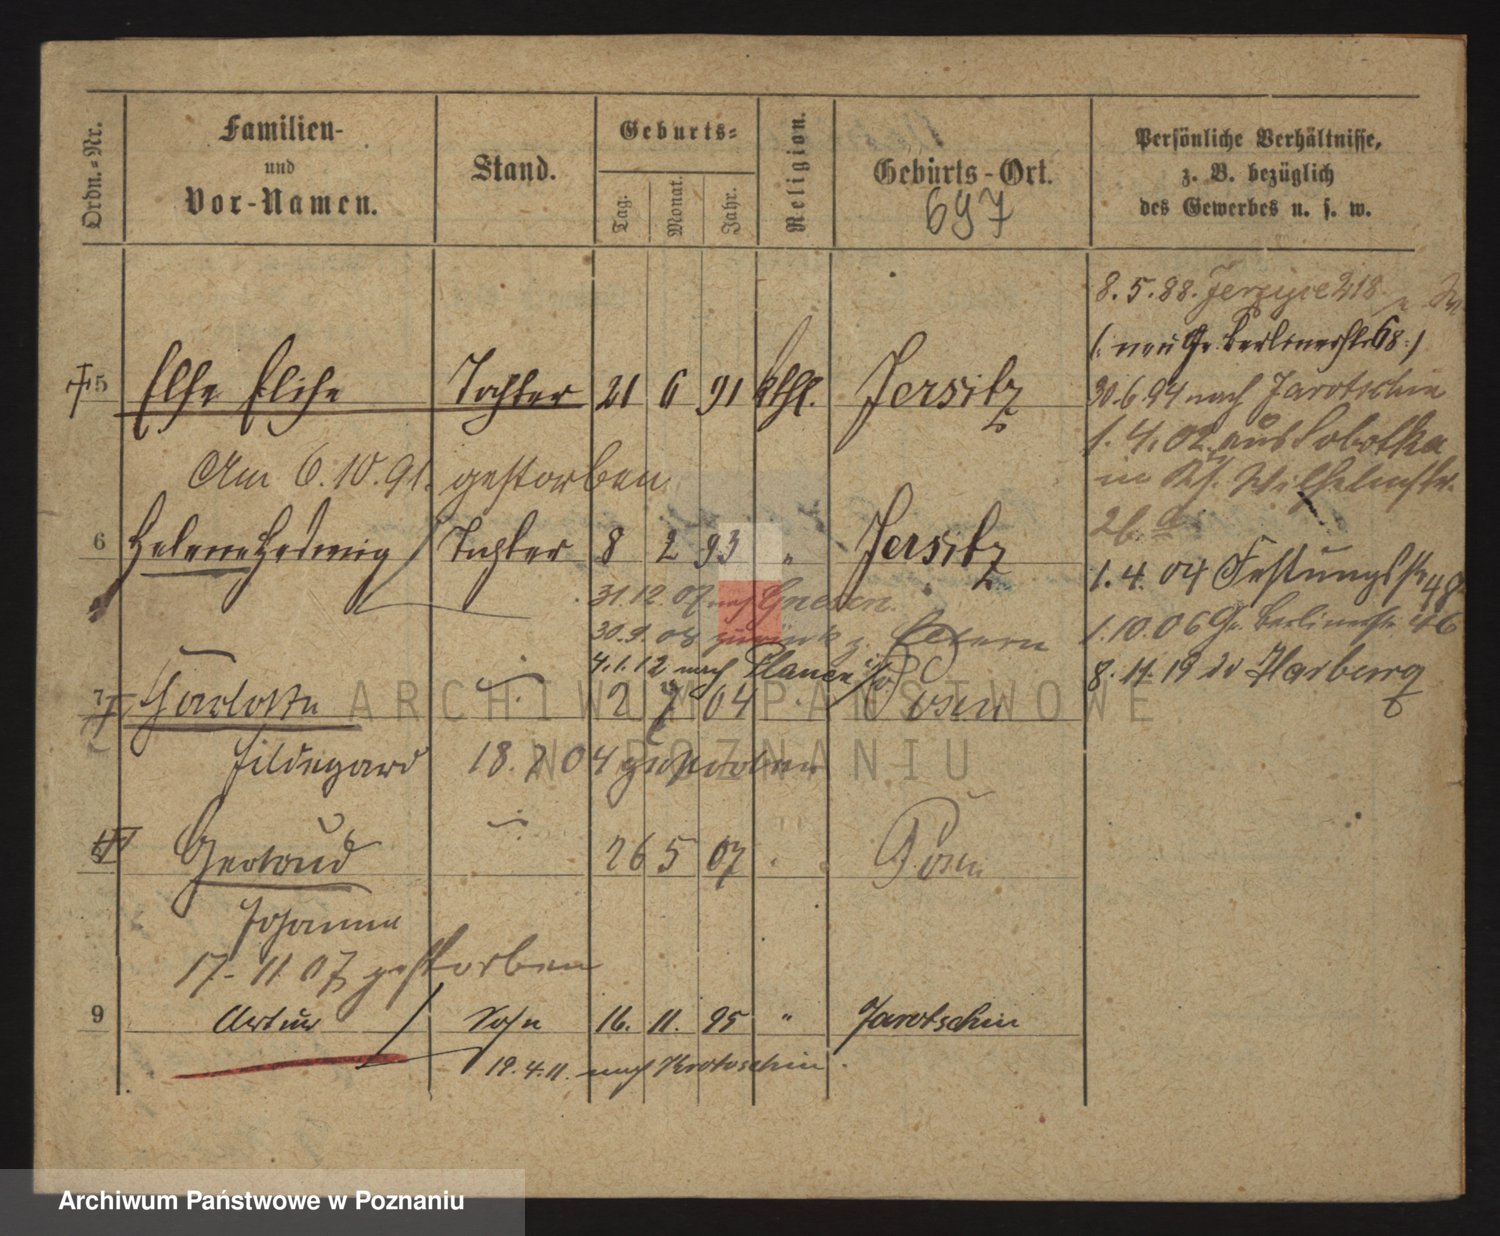 Ordn.-Nr.
Familien-
und
Vor-Namen.
Stand.
Geburts-
Tag.
Monat.
Jahr.
Religion.
Geburts-Ort.
697
Persönliche Verhältnisse,
z. B. bezüglich
des Gewerbes u. s. w.
8.5.88. Jerzyce 218
(: neu Gr. Berlinerstr 68 :)
5 Else Elise Tochter 21 6 91 kthl. Jersitz
30.6.94 nach Jarotschin
1.4.02 aus Sobotka
Am 6.10.91. gestorben
in Wilhelmstr.
26.
6 Helene Hedwig Tochter 8 2 93 " Jersitz
1.4.04 Festungsstr
31.12.07 nach Gnesen.
1.10.06 Gr. Berlinerstr 46
30.9.08 zurück z. Eltern
4.1.12 nach
8.11.19 Harburg
7 Charlotte 2 7 04 Posen
Hildegard 18.7.04 gestorben
Gertrud 26 5 07 Posen
Johanna
17-11 07 gestorben
9 Artur Sohn 16. 11. 95 " Jarotschin
19.4.11. nach Krotoschin.
ARCHIWUM PAŃSTWOWE
W POZNANIU
Archiwum Państwowe w Poznaniu